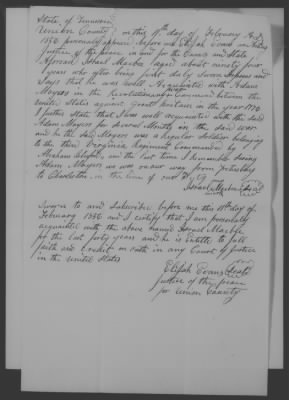 State of Tennessee
Union County on this 19th day of February A.D.
1856 personally appeared before me Elijah Evans an acting
Justice of the peace in and for the County and State
Aforesaid Isbael Mayber (aged about ninety four
years who after being first duly Sworn deposes and
Says that he was Well Acquainted with Adam
Mayers in the Revolutionary war between the
United States against great britain in the year 1780
I further State that I was well acquainted with the Said
Adam Mayers for Several Months in the Said war
and he the Said Mayers was a Regular Soldier belonging
to the third Virginia Regiment Commanded by
Abraham and the last time I Remember Seeing
Adam Mayers was on our way from
to Charleston in the time of our
Seal
Sworn to and Subscribed before me this 19th day of
February 1856 and I certify that I am personally
acquainted with the above named
for the last forty years and he is Entitle to full
faith and Credit on oath in any Court of Justice
in the United States
Elijah Evans Seal
Justice of the peace
for Union County